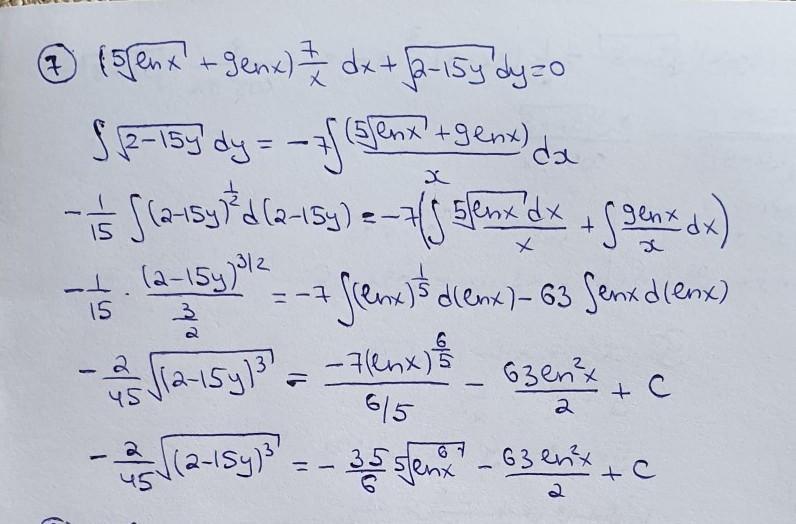 7 (⁵√lnx + 9lnx) 7/x dx + √(2-15y) dy = 0
∫ √(2-15y) dy = -7∫ (⁵√lnx + 9lnx)/x dx
-1/15 ∫ (2-15y)^(1/2) d(2-15y) = -7(∫ ⁵√lnx dx/x + ∫ 9lnx/x dx)
-1/15 · (2-15y)^(3/2)/(3/2) = -7 ∫(lnx)^(1/5) d(lnx) - 63 ∫lnx d(lnx)
-2/45 √((2-15y)³) = -7(lnx)^(6/5)/(6/5) - 63ln²x/2 + C
-2/45 √((2-15y)³) = -35/6 ⁵√(ln⁶x) - 63ln²x/2 + C